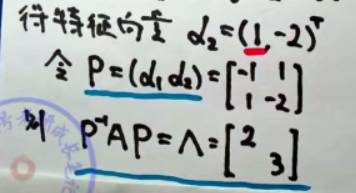 得特征向量 α₂=(1,-2)ᵀ
令 P=(α₁ α₂)=[-1 1; 1 -2]
则 P⁻¹AP=Λ=[2; 3]